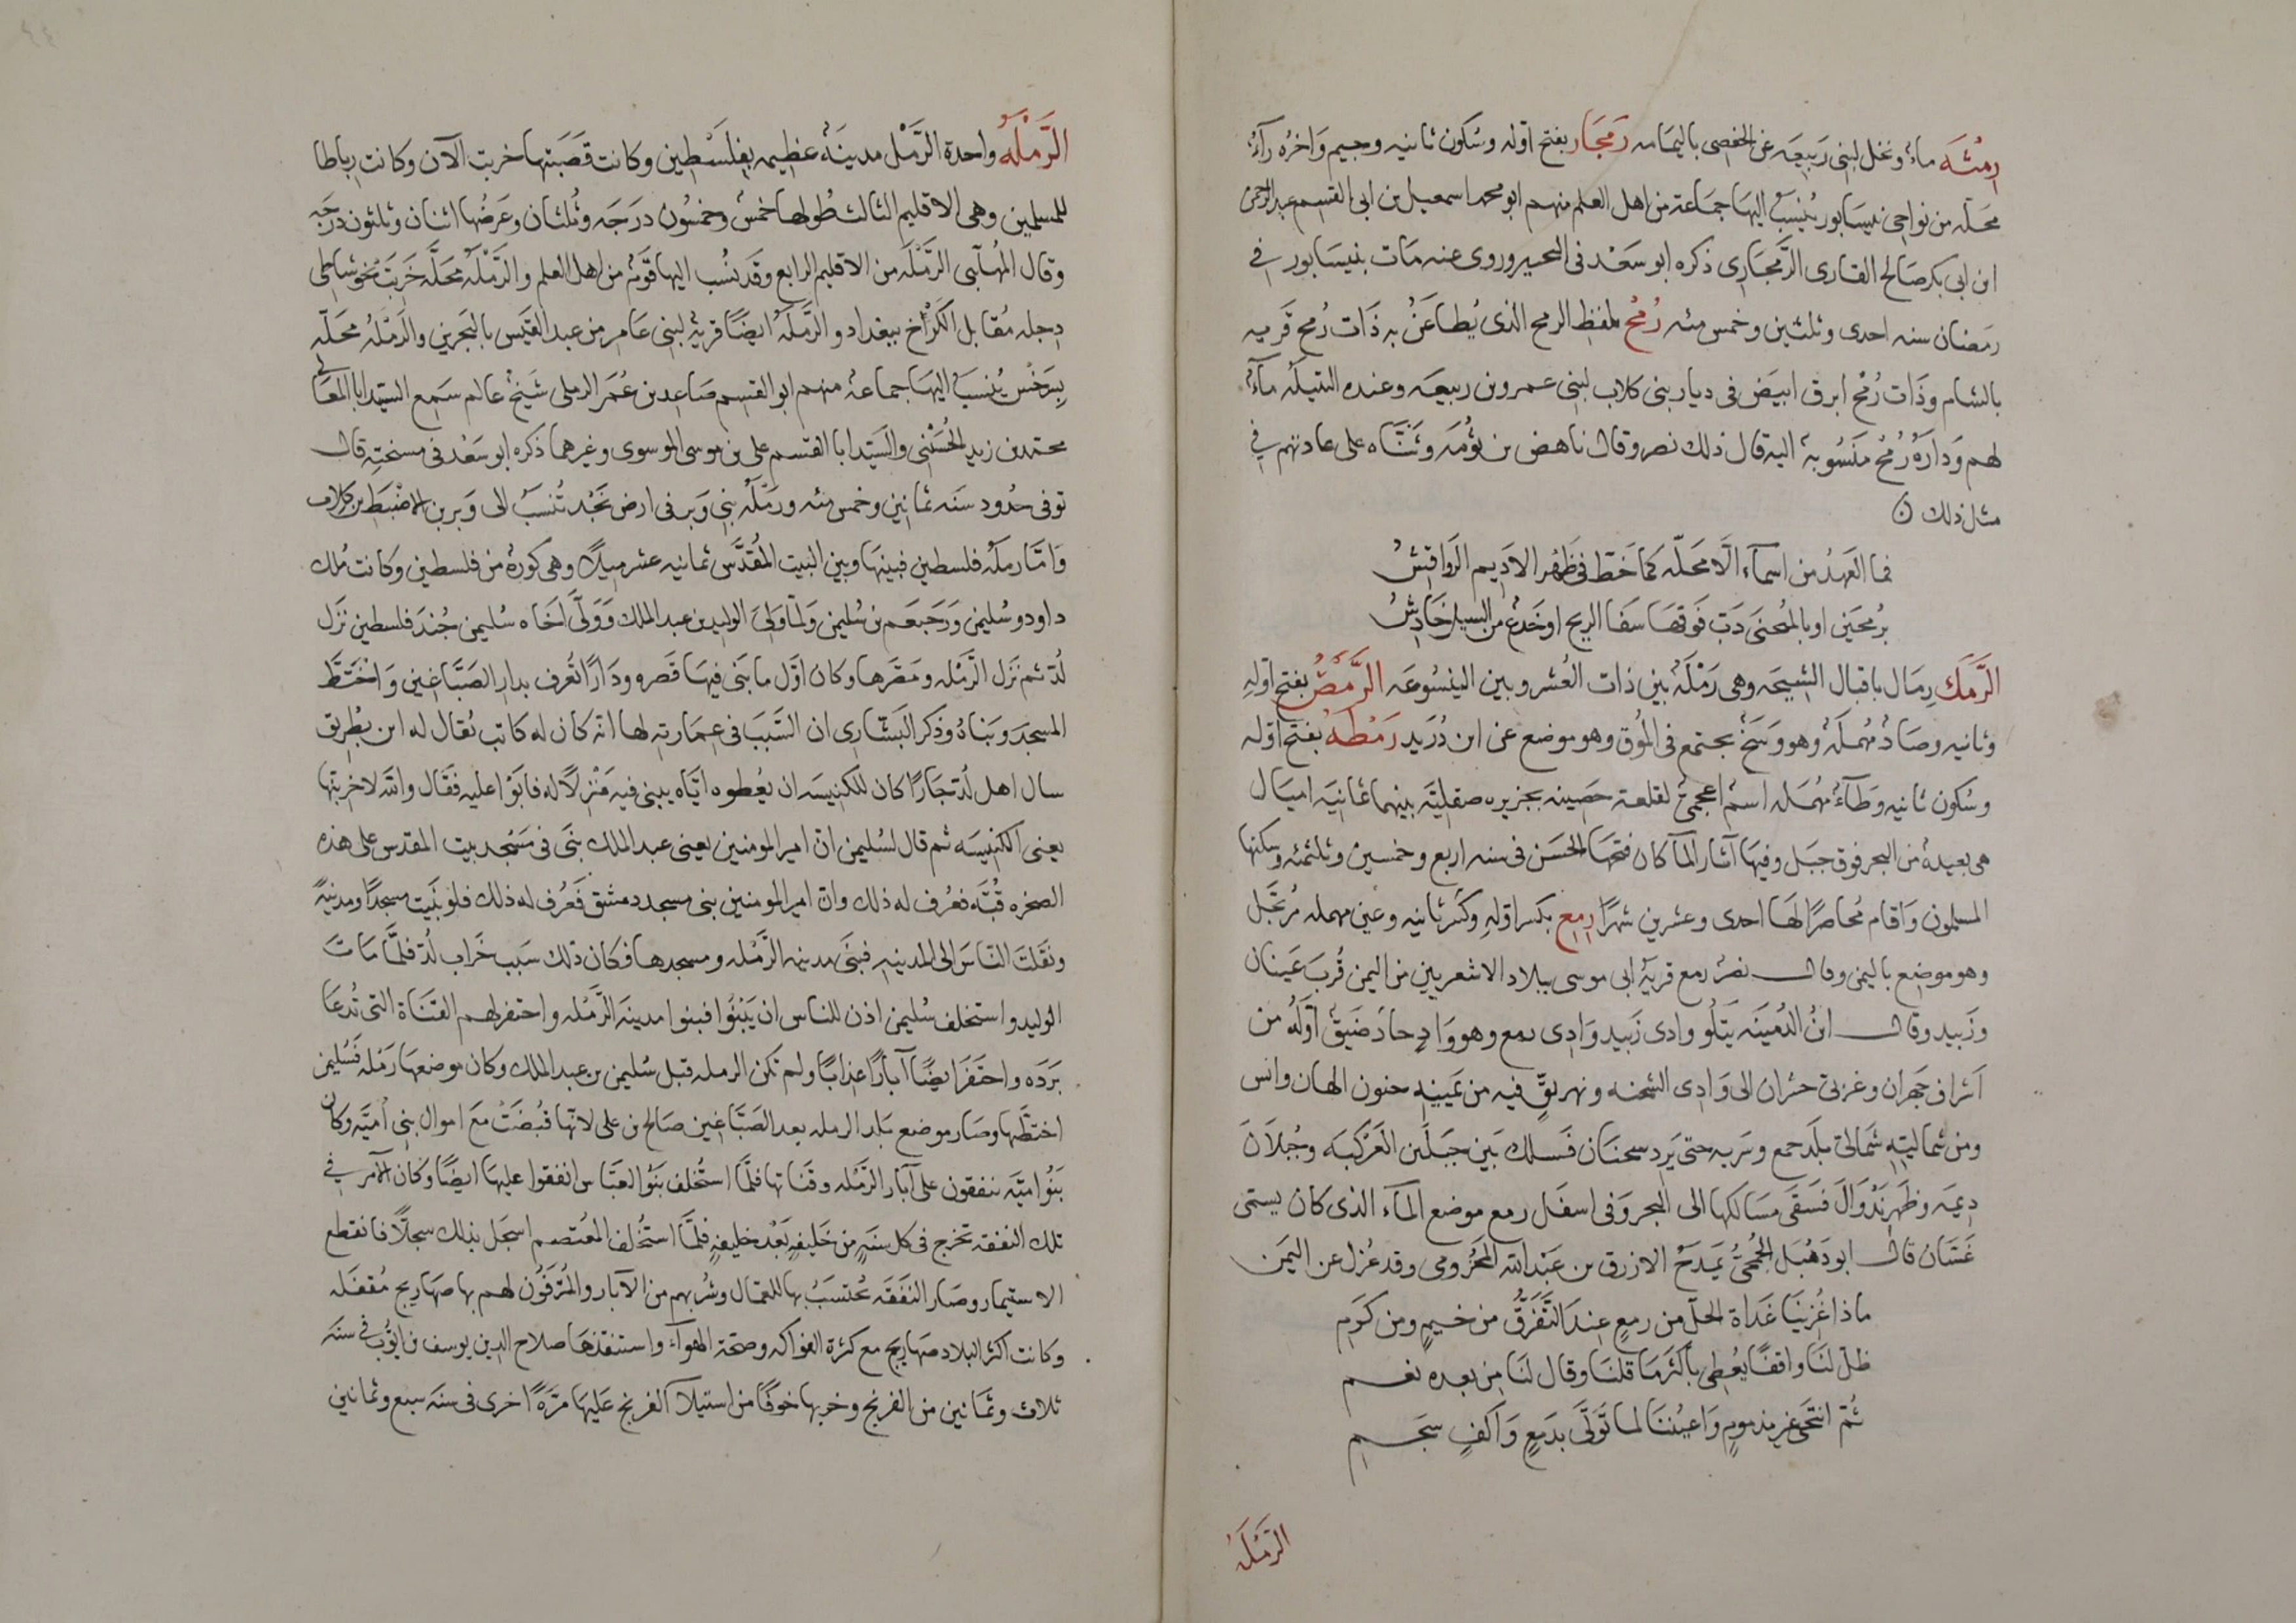 رمْثَه ماءٌ ونخل لبنى رَبيعَه عن الحفصى باليمامه رَمجَار بفتح اوله وسُكون ثانيه وجيم وَاخرُه رآءٌ
محَلّه من نواحى نيسَابور يُنسَبُ اليهَا جمَاعة من اهل العلم منهم ابو محمد اسمعيل بن ابى القسم عبد الرحمن
ابن ابى بكر صَالح القارى الرَّمجَارِى ذكره ابو سَعْد فى التحبير وروى عنه مَات بنيسَابور فى
رمَضان سنه احدى وثلثين وخمس مئه رُمْحٌ بلفظ الرمح الذى يُطاعَنُ به ذَات رُمح قريه
بالشام وذَات رُمْح ابرق ابيَض فى ديار بنى كلاب لبنى عمرو بن ربيعَه وعنده البتيلَه مآءٌ
لهم وَدارَةُ رُمْحٍ مَنسُوبة اليه قال ذلك نصر وقال ناهض بن ثُومَه وثَنَّاه على عادتهم فى
مثل ذلك
فما العَهدُ من اسمآءَ الَّا محَلّه كما خَطّ فى ظَهْر الاديم الرَواقِشُ
برُمحَين او بالمُنحنى دَبّ فَوقهَا سَفا الريح او خَدْع من السيل خَادِشُ
الرَّمَكُ رِمَال باقبال الشيحَه وهى رَمْلَةٌ بين ذات العُشر وبين الينسُوعَه الرَّمَصُ بفتح اوّلِه
وثانيه وصَادٌ مُهملَةٌ وهو وَسَخٌ يجتمع فى المُوق وهو موضع عن ابن دُرَيد رَمْطَهُ بفتح اوّله
وسُكون ثانيه وَطآءٌ مُهمَله اسمٌ اعجمىٌ لقلعة حَصِينه بجزيره صقليَّه بينهما ثمانيَه اميَال
هى بعيدةٌ من البحر فوق جبَل وفيهَا آثار المآ كان فتحهَا الحسَن فى سنه اربع وخمسين وثلثمئه وسكنها
المسلمون وَاقام مُحاصرًا لهَا احدى وعشرين شهرًا رِمع بكسر اوّلِه وكسر ثانيه وعين مهمله مُرتَجَل
وهو موضع باليمن وقال نصرٌ رمع قريةُ ابى موسى ببلاد الاشعريين من اليمن قُربَ غَسّان
وزَبيد وقال ابنُ الدُمَينَه يَتلُو وادى زَبيد وَادِى رمع وهو وَادٍ حادّ ضَيّقٌ اوّلُه من
آشراف جَهران وغربىّ حشران الى وَادِى الشجنه ونهريقٍ فيه من يَمينِه جنون الهان وانس
ومن شماليّهِ شمالىّ بلَد جمع وسَربه حتى يَرِد سحنَان فَسلك بَين جبَلَين العَرْكبَه وجُبلَانَ
ديمَه وظَهر نَدْوَالَ فَسَقَى مسَالكها الى البحر وَفى اسفَل رمع موضع المآء الذى كان يسمى
غَسّان قال ابو دَهْبَل الجُمحِىُّ يَمدَحُ الازرق بن عَبْد الله المخزُومى وقد عُزل عن اليمَن
ماذا رُزِئنَا غَدَاة الحَلّ من رمعٍ عِندَ التَّفَرّقُ من خيمٍ ومن كرَمِ
ظلّ لنَا واقفًا يعُطى باكثَرِ مَا قلنَا وقال لنَا مِن بعده نعم
ثُمّ انتَحى غير مذمومٍ وَاعيُننَا لما تَوَلّى بدَمعٍ وَاكِفٍ سَجِمِ
الرَّمْلَهُ
الرَّمْلَهُ واحدة الرَّمْل مدينَةٌ عظيمه بفِلَسْطِين وكانت قصَبَتها خربت الآن وكانت رباطا
للمسلمين وهى الاقليم الثالث طُولها خمسٌ وخمسُون درَجَه وثُلثان وعَرضُها اثنان وثلثون درجَه
وقال المُهلّبى الرَّمْلَه من الاقليم الرابع وقد نُسِب اليها قَومٌ من اهل العلم والرَّمْلَهُ محلّه خَرِبَت نحو شاطى
دجله مُقابل الكَرْخ ببغداد والرَّملَهُ ايضًا قريةٌ لبنى عَامِر من عبد القَيس بالبَحرين والرمْلهُ محلّه
بسَرَخْس يُنسَبُ اليهَا جماعة منهم ابو القسِم صَاعد بن عُمَر الرملى شَيخٌ عالم سَمع السيّد ابا المعَالى
محمّد بن زيد الحُسَينى والسَيّد ابا القسم على بن موسى الموسوى وغيرهما ذكره ابو سَعْد فى مشيخته قال
توفى حدُود سَنَه ثمانين وخمس مئه ورَمْلَهُ بنى وَبر فى ارض نَجْد تُنسَبُ الى وَبر بن الاضْبَط بن كلاب
وَامّا رمْلَه فلسطين فبينَهَا وبين البيت المُقدَّس ثمانيه عشر ميلًا وهى كورةٌ من فلسطين وكانت مُلك
داود وسُليمن وَرَحبعَم بن سُليمن ولمّا وَلىَ الوليد بن عبد الملك وَوَلَّى اخَاه سُليمن جُندَ فلسطين نَزَل
لُدّ ثم نَزَل الرَّمْله ومَصَّرها وكان اوّل ما بَنَى فيهَا قَصره ودَارًا تُعرف بدار الصَبَّاغين وَاخْتَطّ
المسجدَ وبَناهُ وذكَر البَشّارى ان السَّبَبَ فى عِمَارته لها انّه كان له كاتب يُقال له ابن بِطْرِيق
سال اهل لُدّ جَارًا كان للكنيسَه ان يعُطوه ايّاه يبنى فيه مَنْزِلًا له فابَوْا عليه فقَال والله لاخربنّها
يعنى الكنيسَه ثم قال لسُليمن انّ امير المومنين يعنى عبد الملك بنَى فى مَسْجد بيت المقدس على هذه
الصخره قُبّه فعُرف له ذلك وانّ امير المومنين بنى مسجد دمشق فَعُرف له ذلك فلو بنَيت مسجدًا ومدينَةً
ونَقَلتَ النّاسَ الى المدينه فبَنَى مدينه الرَّمْله ومسجدها فكان ذلك سَبب خَراب لُدّ فلمَّا مَاتَ
الوليد واستخلف سُليمن اذن للناس ان يَبْنُوا فبنوا مدينَه الرَّمْله واحتفر لهم القنَاة التى تُدعَا
بَرَدَه واحتَفَر ايضًا آبارًا عذابًا ولم تكن الرمله قبل سُليمن بن عبد الملك وكان موضعهَا رَمْله فَسُليمن
اختطّها وصَار موضع بَلد الرمله بعد الصَبّاغين صَالح بن على لانّها قُبضَتْ معَ اموال بنى اُميَّه وكان
بَنُوا ميَّه ينفقون على آبار الرَّمْله وقَناتها فلمَّا استُخلف بَنُوا العبّاس انفقوا عليهَا ايضًا وكان الامر فى
تلك النفقه تخرج فى كل سنَهٍ من خَليفهٍ بَعْد خليفهٍ فلمَّا استُخلف المُعتصم اسجَل بذلك سجلًّا فانقطع
الاستيمار وصَار النفَقَه تُحتسَبُ بها للعمّال وشُربهم من الآبار والمُترَفُون لهم بها صهَاريج مُقفَلَه
وكانت اكثر البلاد صهَاريج مع كثرة الفواكه وصحة الهوآء واستنقذهَا صلاح الدين يوسف بن ايوُّب فى سَنَه
ثلاث وثمَانين من الفرنج وخربها خوفًا من استيلآ الفرنج عليهَا مرّةً اخرى فى سنَه سبع وثمانين